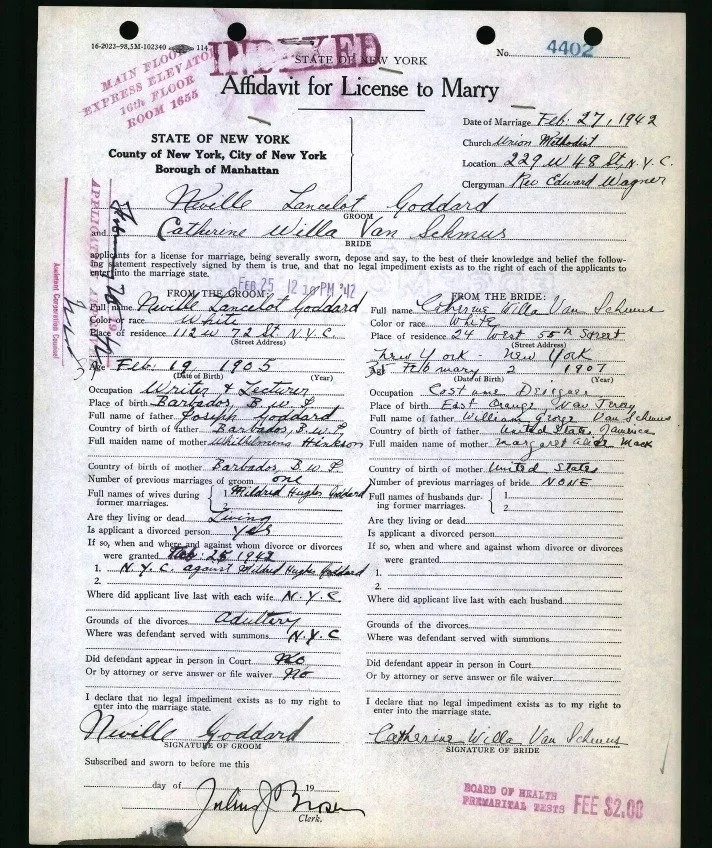 16-2023-98,5M-102340 114
INDEXED
STATE OF NEW YORK
No. 4402
MAIN FLOOR
EXPRESS ELEVATOR
16th FLOOR
ROOM 1655
Affidavit for License to Marry
STATE OF NEW YORK
County of New York, City of New York
Borough of Manhattan
Date of Marriage Feb. 27, 1942
Church Union Methodist
Location 229 W 48 St, N.Y.C.
Clergyman Rev Edward Wagner
Neville Lancelot Goddard
GROOM
and Catherine Willa Van Schmus
BRIDE
applicants for a license for marriage, being severally sworn, depose and say, to the best of their knowledge and belief the follow-
ing statement respectively signed by them is true, and that no legal impediment exists as to the right of each of the applicants to
enter into the marriage state.
FEB 25 12 19 PM '42
Assistant Corporation Counsel
FROM THE GROOM:
Full name Neville Lancelot Goddard
Color or race White
Place of residence 112 W 72 St. N.Y.C.
(Street Address)
Age Feb. 19 1905
(Date of Birth) (Year)
Occupation Writer & Lecturer
Place of birth Barbados, B.W.I.
Full name of father Joseph Goddard
Country of birth of father Barbados, B.W.I.
Full maiden name of mother Whilhlmena Hinkson
Country of birth of mother Barbados, B.W.I.
Number of previous marriages of groom one
Full names of wives during
former marriages. 1 Mildred Hughes Goddard
2
Are they living or dead Living
Is applicant a divorced person Yes
If so, when and where and against whom divorce or divorces
were granted 25 1942
1. N.Y.C. against Mildred Hughes Goddard
2.
Where did applicant live last with each wife N.Y.C.
Grounds of the divorces Adultery
Where was defendant served with summons N.Y.C
Did defendant appear in person in Court No
Or by attorney or serve answer or file waiver No
I declare that no legal impediment exists as to my right to
enter into the marriage state.
Neville Goddard
SIGNATURE OF GROOM
Subscribed and sworn to before me this
day of 19
Clerk.
FROM THE BRIDE:
Full name Catherine Willa Van Schmus
Color or race White
Place of residence 24 West 55th Street
(Street Address)
New York - New York
Age February 2 1907
(Date of Birth) (Year)
Occupation Costume Designer
Place of birth East Orange New Jersey
Full name of father William George Van Schmus
Country of birth of father United States America
Full maiden name of mother Margaret Alice Mack
Country of birth of mother United States
Number of previous marriages of bride NONE
Full names of husbands dur-
ing former marriages. 1
2
Are they living or dead
Is applicant a divorced person
If so, when and where and against whom divorce or divorces
were granted
1.
2.
Where did applicant live last with each husband
Grounds of the divorces
Where was defendant served with summons
Did defendant appear in person in Court
Or by attorney or serve answer or file waiver
I declare that no legal impediment exists as to my right to
enter into the marriage state.
Catherine Willa Van Schmus
SIGNATURE OF BRIDE
BOARD OF HEALTH
PREMARITAL TESTS FEE $2.00